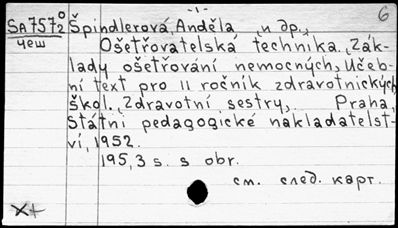 -1-
6
SA 757 0/2 Špindlerová, Anděla и др.,
чеш Ošetřovatelská technika. Zák-
lady ošetřování nemocných, Učeb-
ní text pro II ročník zdravotnických
škol. Zdravotní sestry,. Praha,
Státní pedagogické nakladatelst-
ví, 1952.
195,3 s. s obr.
см. след. карт.